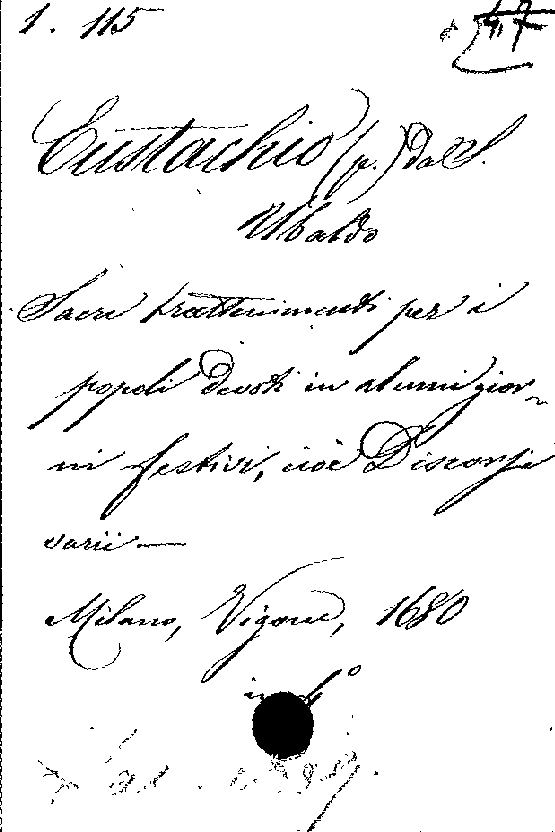 1. 115
47
Eustachio (p.) da S.
Ubaldo
Sacri trattenimenti per i
popoli devoti in alcuni gior-
ni festivi, cioè Discorsi
varii —
Milano, Vigone, 1680
in 4°